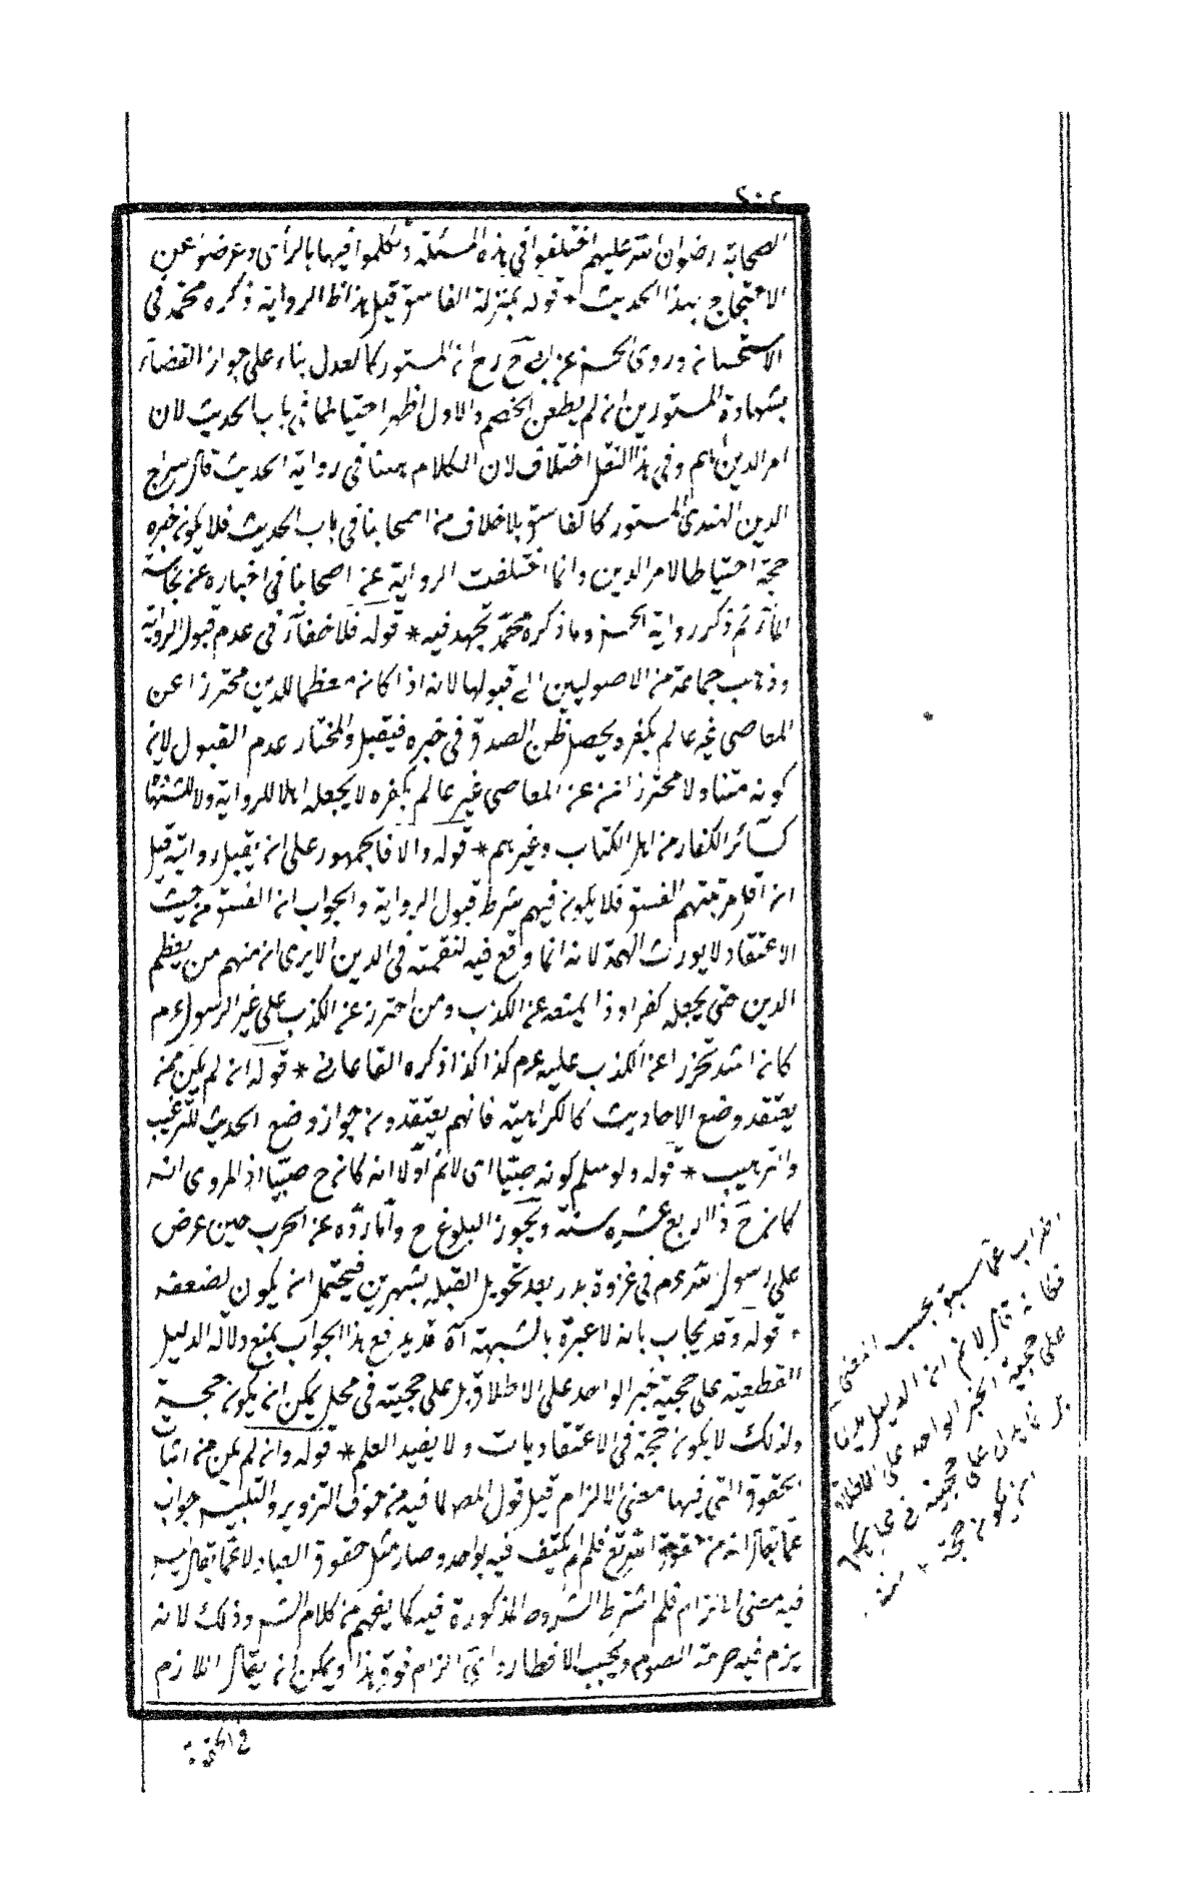 ٢٠٢
الصحابة رضوان الله عليهم اختلفوا في هذه المسئلة وتكلموا فيها بالرأى وعرضوا عن
الاحتجاج بهذا الحديث * قوله بمنزلة الفاسق قيل هذا ظ الرواية ذكره محمد في
الاستحسان وروى الحسن عن ابى ح رح ان المستور كالعدل بناء على جواز القضاء
بشهادة المستورين ان لم يطعن الخصم والاول اظهر احتياطا في باب الحديث لان
امر الدين اهم وفي هذا النقل اختلاف لان الكلام ههنا في رواية الحديث قال سراج
الدين الهندى المستور كالفاسق بلا خلاف من اصحابنا في باب الحديث فلا يكون خبره
حجة احتياطا لامر الدين وانما اختلفت الرواية عن اصحابنا في اخباره عن نجاسة
الماء ثم ذكر رواية الحسن وما ذكره محمد تجهد فيه * قوله فلا خفاء في عدم قبول الرواية
وذهب جماعة من الاصوليين الى قبولها لانه اذا كان معظما للدين محترزا عن
المعاصى غير عالم بكفره يحصل ظن الصدق في خبره فيقبل والمختار عدم القبول لان
كونه متناولا محترزا عن المعاصى غير عالم بكفره لا يجعله اهلا للرواية ولا للشهادة
كسائر الكفار من اهل الكتاب وغيرهم * قوله والا فالجمهور على ان يقبل روايته قيل
ان اقل مرتبتهم الفسق فلا يكون فيهم شرط قبول الرواية والجواب ان الفسق من حيث
الاعتقاد لا يورث التهمة لانه انما وقع فيه لتعمقه في الدين الا يرى ان منهم من يعظم
الدين حتى يجعله كفرا وذا يمنعه عن الكذب ومن احترز عن الكذب على غير الرسول عم
كان اشد تحرزا عن الكذب عليه عم كذا ذكره القاءانى * قوله ان لم يكن ممن
يعتقد وضع الاحاديث كالكرامية فانهم يعتقدون جواز وضع الحديث للترغيب
والترهيب * قوله ولو سلم كونه صبيا اى لانم اولا انه كان ح صبيا اذ المروى انه
كان ح ذا اربع عشره سنة ويجوز البلوغ ح واما رده عن الحرب حين عرض
على رسول الله عم في غزوة بدر بعد تحويل القبلة بشهرين فيحتمل ان يكون لضعفه
* قوله وقد يجاب بانه لا عبرة بالشبهة آه قد يدفع هذا الجواب بمنع دلالة الدليل
القطعية على حجية خبر الواحد على الاطلاق بل على حجيته في محل يمكن ان يكون حجة
ولذلك لا يكون حجة في الاعتقاديات ولا يفيد العلم * قوله وان لم يكن من اثبات
الحقوق التى فيها معنى الالزام قيل قول المص لما فيه من خوف التزوير والتلبيس جواب
عما يقال انه من حقوق الله تع فلم لم يكتف فيه بواحد وصار مثل حقوق العباد لا عما يقال ليس
فيه معنى الالزام فلم اشترط الشروط المذكورة فيه كما يفهم من كلام الشـ وذلك لانه
يلزم فيه حرمة الصوم ويجب الافطار واى الزام فوق هذا ويمكن ان يقال اللازم
في الحقيقة
اضراب عما سبق بحسب المعنى
فكانه قال لانم ان الدليل يدل
على حجية الخبر الواحد على الاطلاق
بل انما يدل على حجيته في محل يمكن
ان يكون حجة * منه